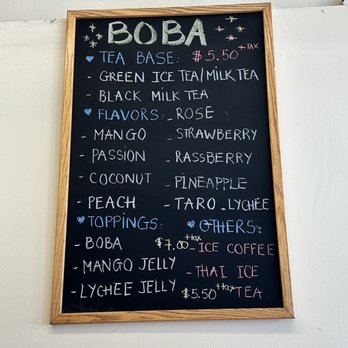 BOBA
TEA BASE: $5.50 +TAX
- GREEN ICE TEA/MILK TEA
- BLACK MILK TEA
FLAVORS: - ROSE
- MANGO - STRAWBERRY
- PASSION - RASSBERRY
- COCONUT - PINEAPPLE
- PEACH - TARO - LYCHEE
TOPPINGS: OTHERS:
- BOBA $7.00 +tax - ICE COFFEE
- MANGO JELLY - THAI ICE
- LYCHEE JELLY $5.50 +tax TEA